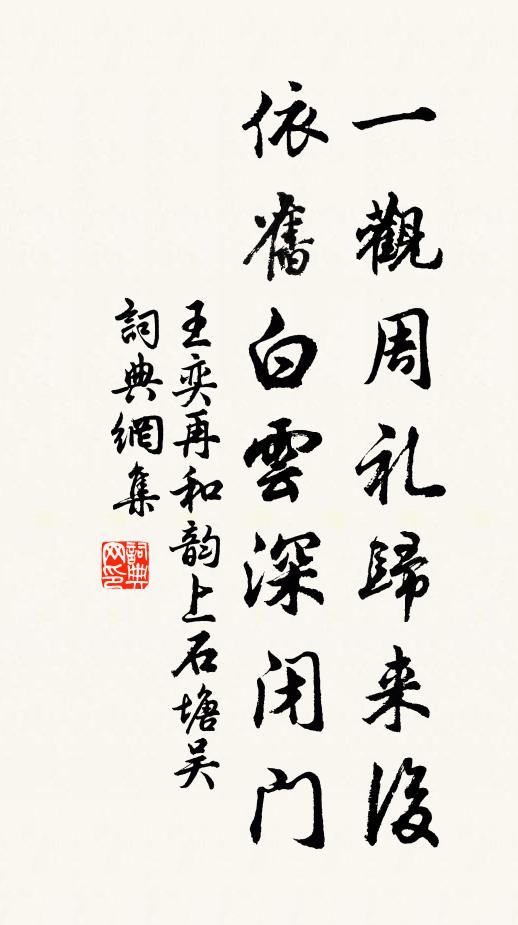 一觀周礼歸来後
依舊白雲深闭門
王奕再和韵上石塘吴
詞典網集
詞典
网印